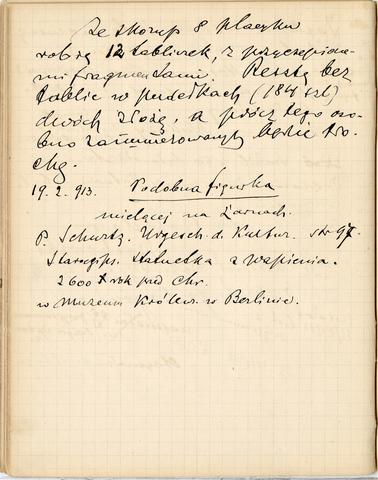 Ze skorup 8 placyku
robię 12 tabliczek, z przyczepiona-
mi fragmentami. Resztę bez
tablic w pudełkach (184 szt)
dwóch złożę, a prócz tego oso-
bno zanumerowanych będzie tro-
chę.
19. 2. 913. Podobna figurka
mielącej na żarnach.
P. Schurtz. Urgesch. d. Kultur. str 97
Staroegips. Statuetka z wapienia.
2600 rok przed Chr.
w Muzeum Królew. w Berlinie.